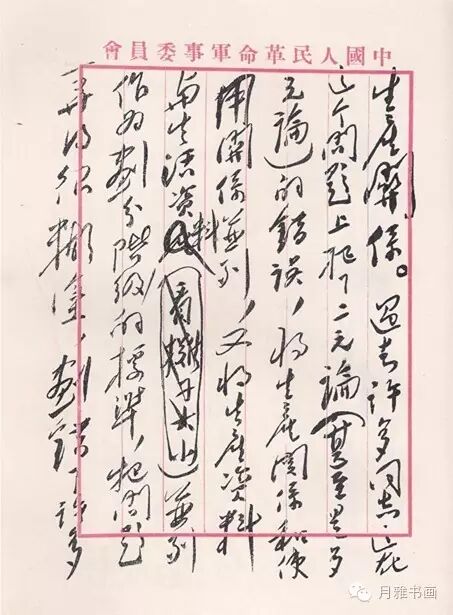 中國人民革命軍事委員會
生產關係。過去許多同志在
这个問題上犯了二元論(甚至是多
元論)的錯誤,将生產関係和使
用関係並列,又将生產資料
与生活資料(看子大小)並列
作为劃分階級的標準,把問題
弄得很糊塗,劃錯了許多
月雅书画